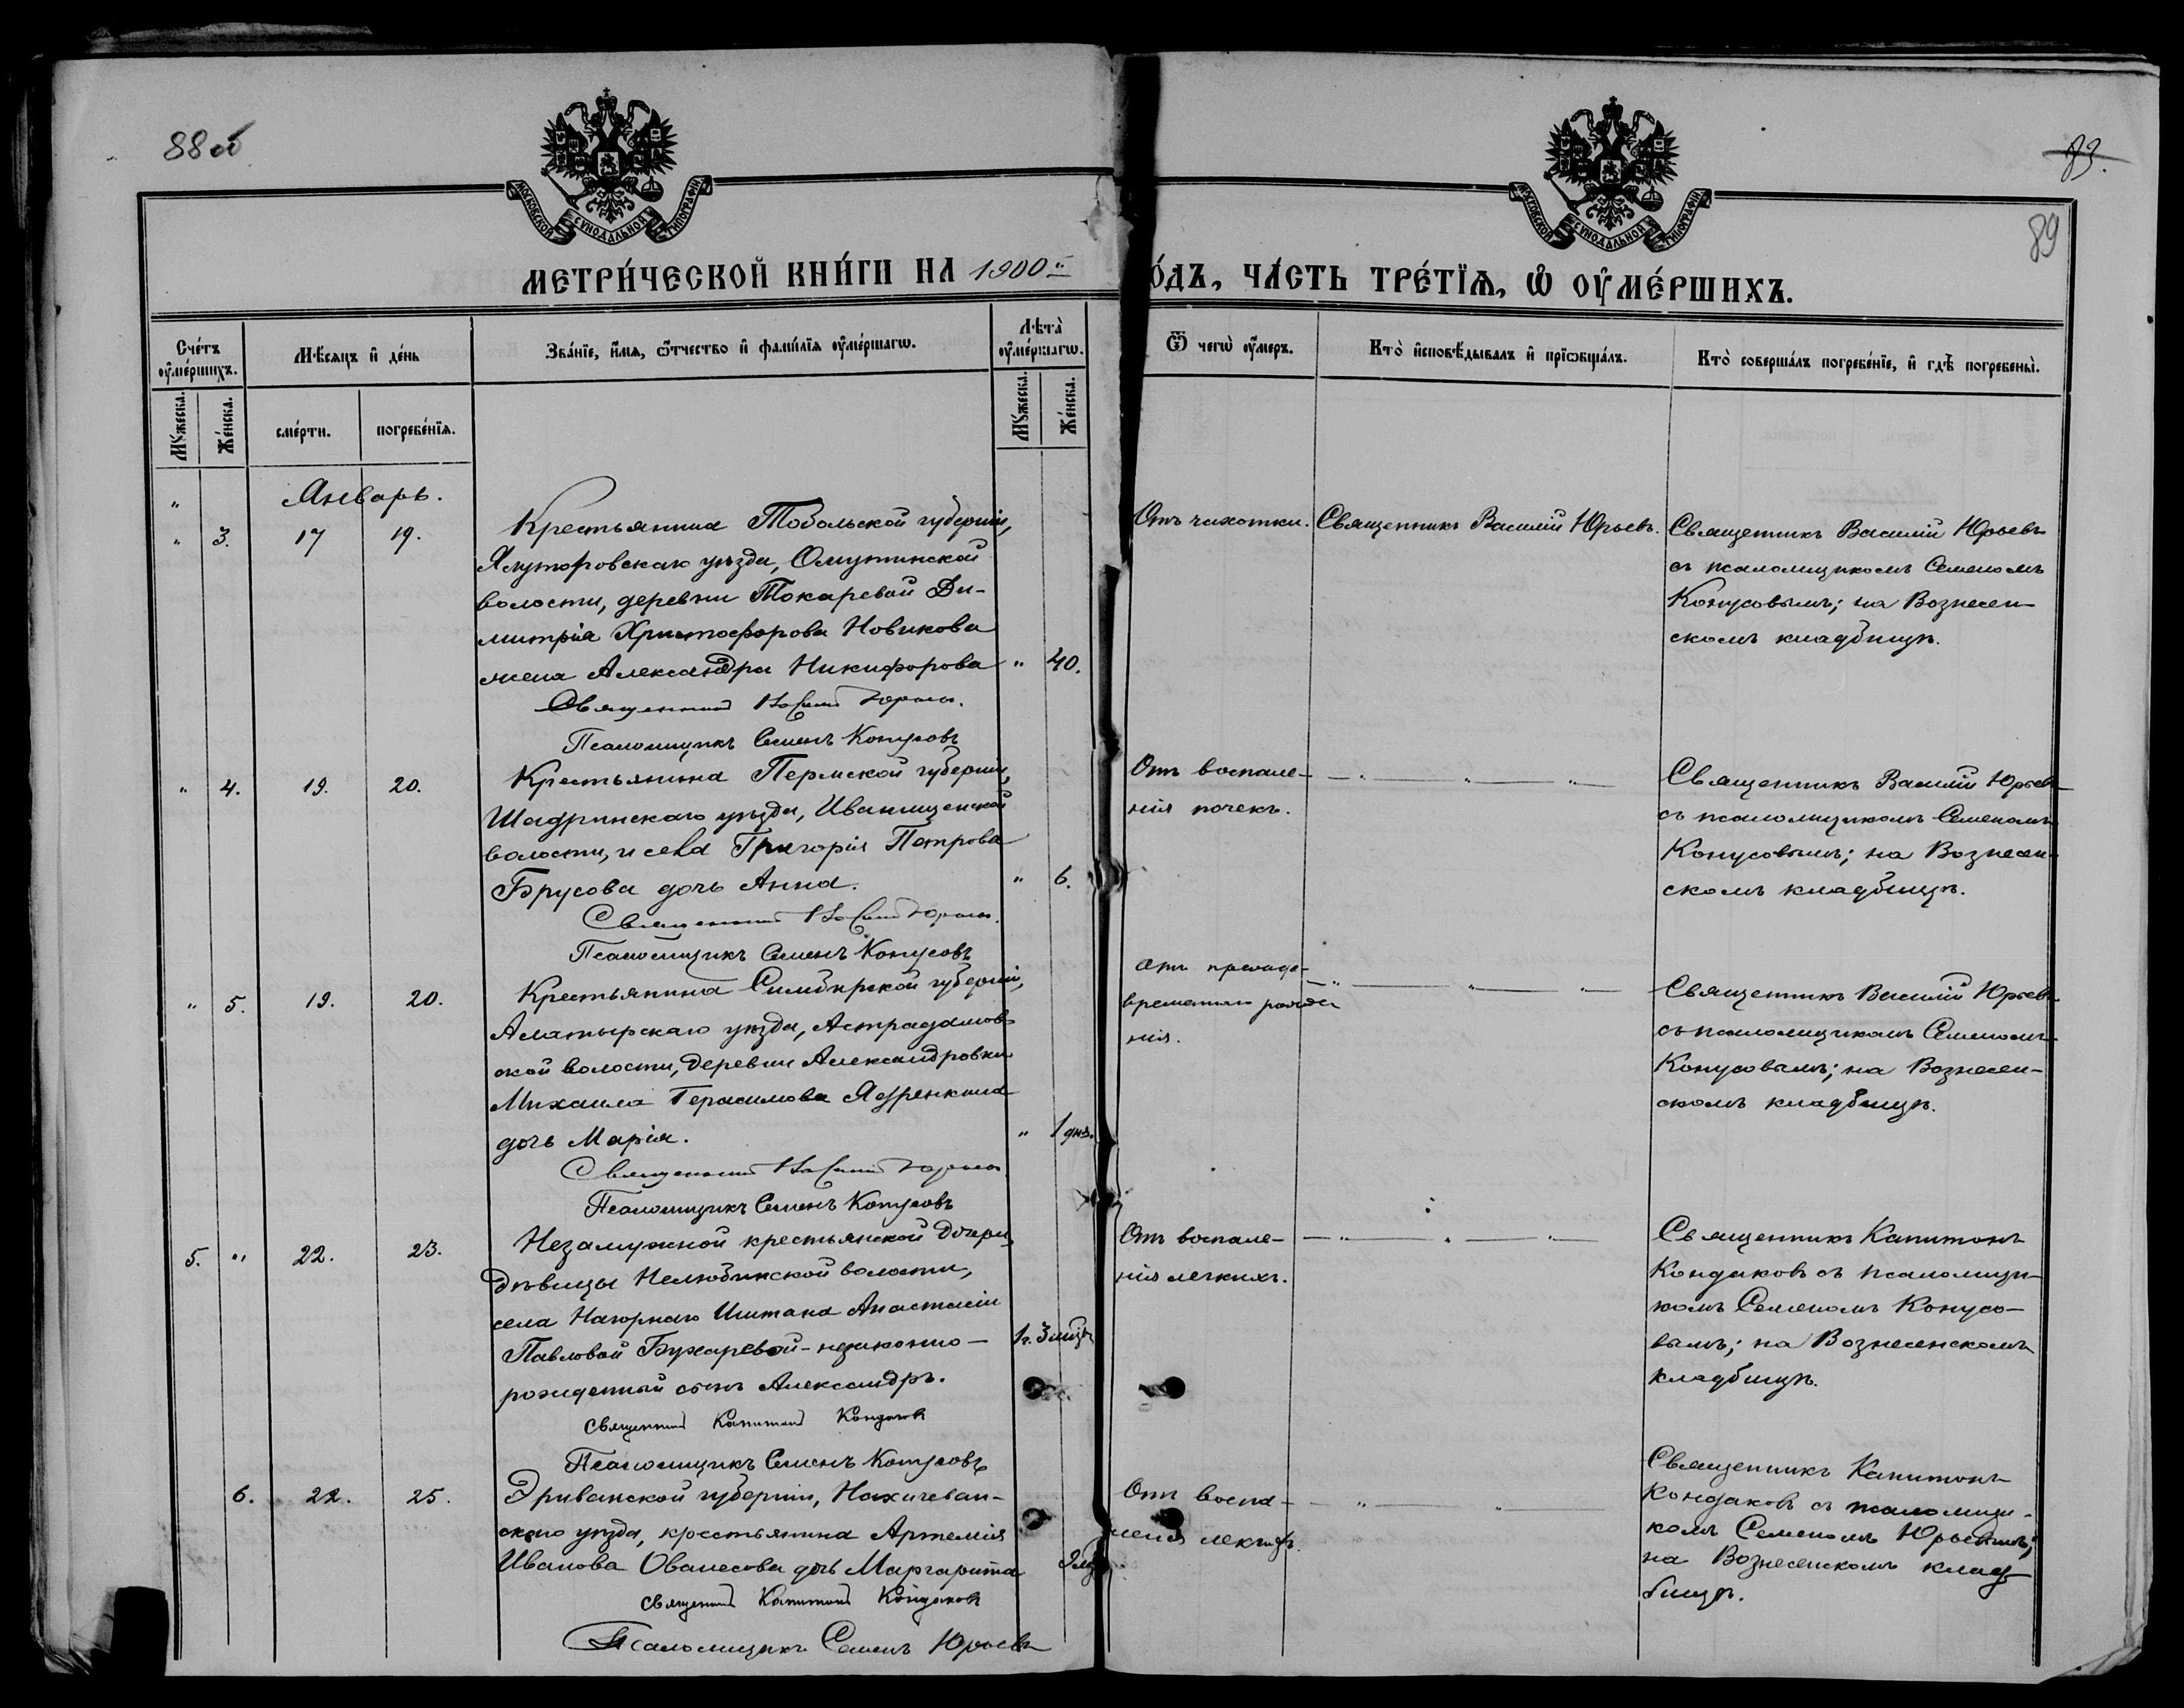 88об
83.
89
МОСКОВСКОЙ СѴНОДАЛЬНОЙ ТИПОГРАФІИ
МОСКОВСКОЙ СѴНОДАЛЬНОЙ ТИПОГРАФІИ
МЕТРИ́ЧЕСКОЙ КНИ́ГИ НА 1900й
О́ДЪ, ЧА́СТЬ ТРЕ́ТЇѦ, Ѡ҆ ОУ҆МЕ́РШИХЪ.
Сче́тъ оу҆ме́ршихъ.
Му́жеска.
Же́нска.
Мѣ́сяцъ и҆ де́нь
сме́рти.
погребе́нїѧ.
Зва́нїе, и҆́мѧ, ѻ҆́тчество и҆ фамѝлїѧ оу҆ме́ршагѡ.
Лѣ̑та оу҆ме́ршагѡ.
Му́жеска.
Же́нска.
Ѿ чегѡ̀ оу҆́меръ.
Кто̀ и҆сповѣ́дывалъ и҆ прїѡбща́лъ.
Кто̀ соверша́лъ погребе́нїе, и҆ гдѣ̀ погребены̀.
Январь.
" 3. 17 19.
Крестьянина Тобольской губерніи,
Ялуторовскаго уѣзда, Омутинской
волости, деревни Токаревой Ди-
митрія Христофорова Новикова
жена Александра Никифорова " 40.
Священникъ Василій Юрьевъ.
Псаломщикъ Семенъ Конусовъ
Отъ чахотки.
Священникъ Василій Юрьевъ.
Священникъ Василій Юрьевъ
съ псаломщикомъ Семеномъ
Конусовымъ; на Вознесен-
скомъ кладбищѣ.
" 4. 19. 20.
Крестьянина Пермской губерніи,
Шадринскаго уѣзда, Иванищенской
волости, и села Григорія Петрова
Брусова дочь Анна. " 6.
Священникъ Василій Юрьевъ.
Псаломщикъ Семенъ Конусовъ
Отъ воспале-
нія почекъ.
— " — " — " —
Священникъ Василій Юрьевъ
съ псаломщикомъ Семеномъ
Конусовымъ; на Вознесен-
скомъ кладбищѣ.
" 5. 19. 20.
Крестьянина Симбирской губерніи,
Алатырскаго уѣзда, Астрадамов-
ской волости, деревни Александровки
Михаила Герасимова
дочь Марія. " 1 дня.
Священникъ Василій Юрьевъ
Псаломщикъ Семенъ Конусовъ
Отъ преждевременнаго рожде
нія.
— " — " — " —
Священникъ Василій Юрьевъ
съ псаломщикомъ Семеномъ
Конусовымъ; на Вознесен-
скомъ кладбищѣ.
5. " 22. 23.
Незамужной крестьянской дочери,
дѣвицы Нелюбинской волости,
села Нагорнаго Иштана Анастасіи
Павловой Бухаревой - незаконно- 1г. 3 мѣс.
рожденный сынъ Александръ.
священникъ Капитонъ Кондаковъ
Псаломщикъ Семенъ Конусовъ
Отъ воспале-
нія легкихъ.
— " — " — " —
Священникъ Капитонъ
Кондаковъ съ псаломщи-
комъ Семеномъ Конусо-
вымъ; на Вознесенскомъ
кладбищѣ.
6. 22. 25.
Эриванской губерніи, Нахичеван-
скаго уѣзда, крестьянина Артемія
Иванова Ованесова дочь Маргарита
священникъ Капитонъ Кондаковъ
Псаломщикъ Семенъ Юрьевъ
Отъ воспа-
ленія легкихъ.
— " — " —
Священникъ Капитонъ
Кондаковъ съ псаломщи-
комъ Семеномъ Юрьевымъ;
на Вознесенскомъ клад-
бищѣ.